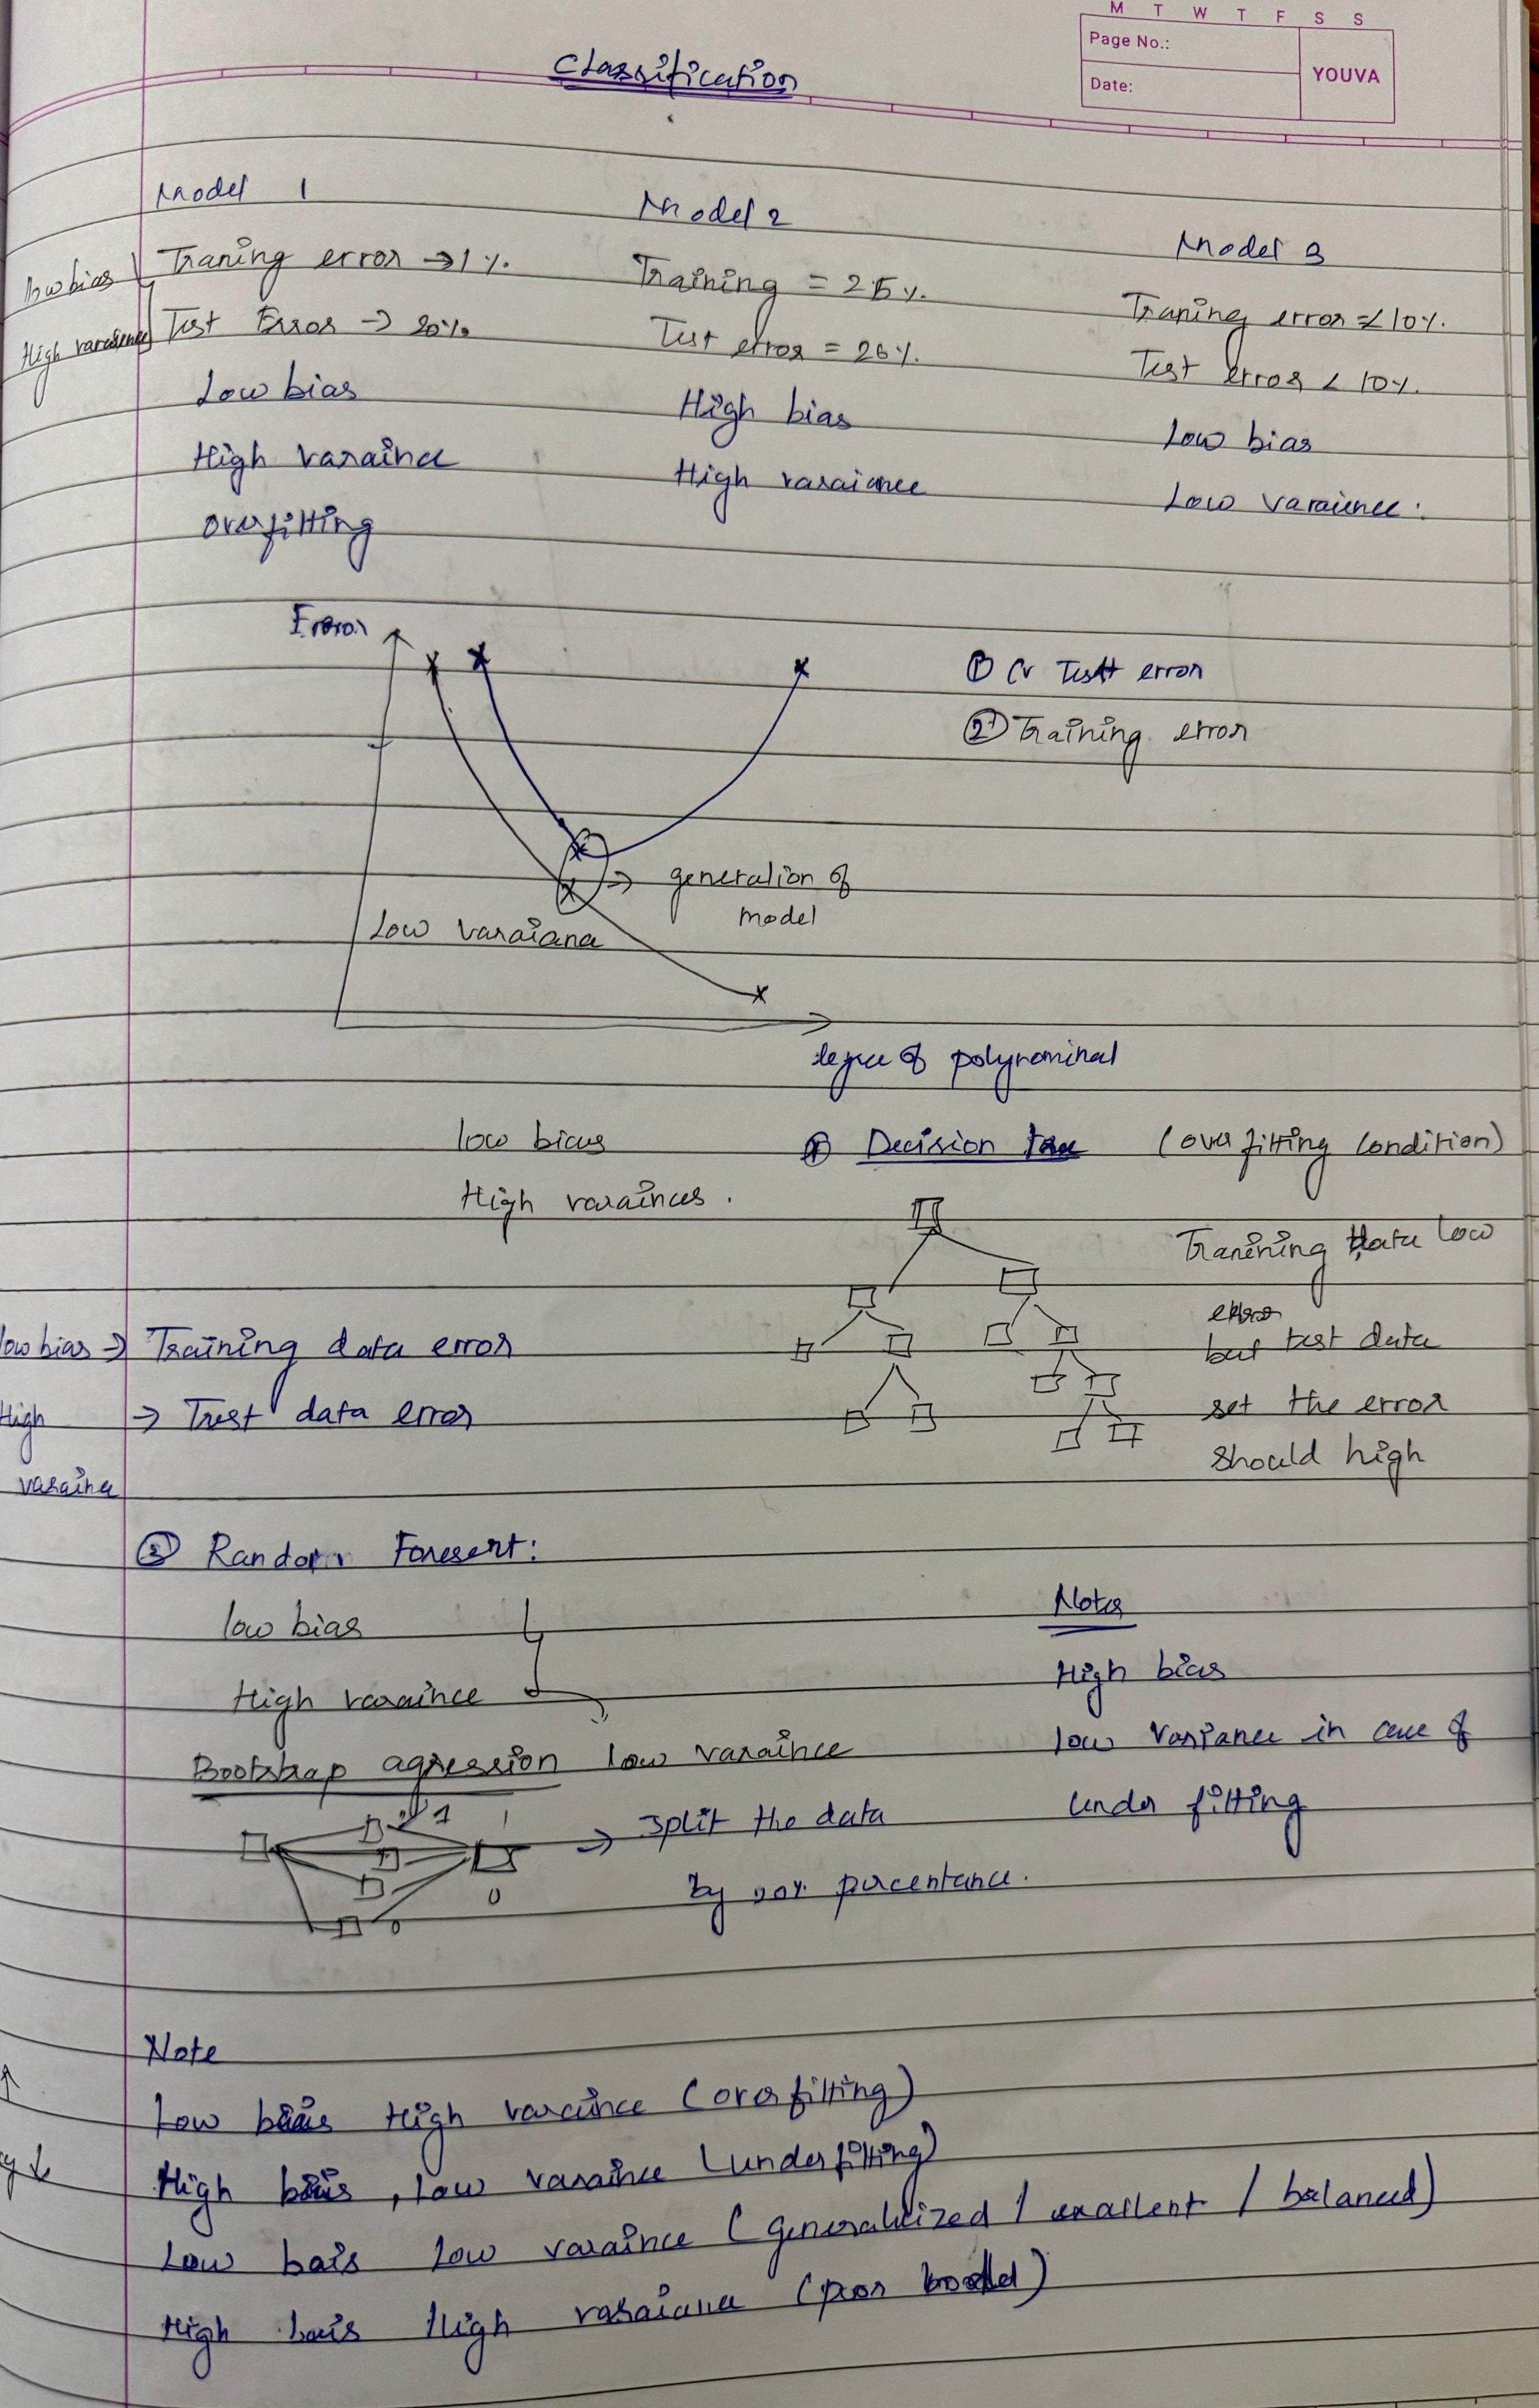 M T W T F S S
Page No.:
Date:
YOUVA
Classification
Model 1
Traning error → 1 %.
Test Error → 20%
Low bias
High varaince
overfitting
low bias
High varaience
Model 2
Training = 25%.
Test error = 26%.
High bias
High varaiance
Model 3
Traning error < 10%.
Test error < 10%.
Low bias
Low varaience.
Error
① Cv Test error
② Training error
→ generalion of
model
Low varaiana
degree of polynominal
low bias
High varainces.
① Decision tree (over fitting condition)
Tranining data low
error
but test data
set the error
should high
low bias → Training data error
High → Test data error
varaince
② Random Foresert:
low bias
High varaince
Bootstrap agression low varaince
1 1
0
0
→ split the data
by percentance.
Notes
High bias
low Variance in case of
under fitting
Note
Low bias High varaince (overfitting)
High bias, Low varaince (underfitting)
Low bais low varaince (generalized / exallent / balanced)
High bais High varaiana (poor model)